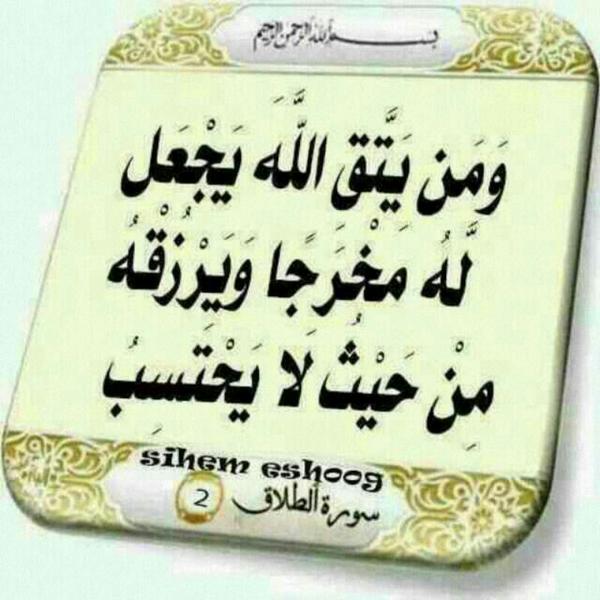 بسم الله الرحمن الرحيم
وَمَن يَتَّقِ اللَّهَ يَجْعَل
لَّهُ مَخْرَجًا وَيَرْزُقْهُ
مِنْ حَيْثُ لَا يَحْتَسِبُ
sihem eshoog
سورة الطلاق 2